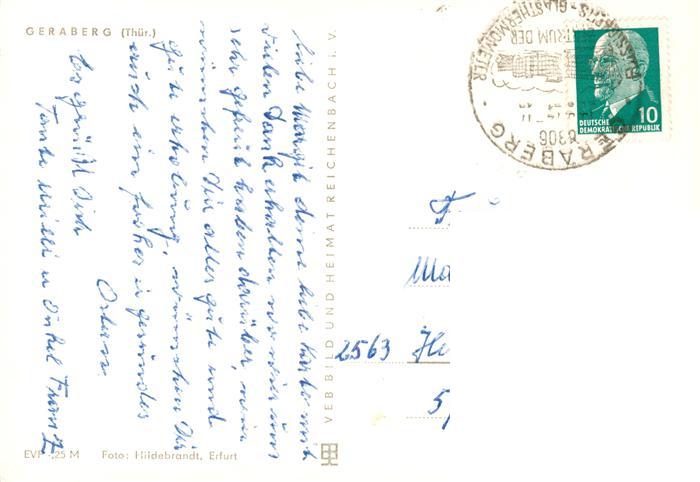 GERABERG (Thür.)
Liebe Margit deine liebe Karte mit
vielen Dank erhalten wo wir uns
sehr gefreut haben darüber, wir
wünschen Dir alles gute und
gute erholung, wünschen Dir
auch ein frohes u gesundes
Ostern
es grüßt Dich
Tante Milli u Onkel Franz
EVP -,25 M Foto: Hildebrandt, Erfurt
VEB BILD UND HEIMAT REICHENBACH i. V.
GERABERG
6306
ZENTRUM DER
GLASTHERMOMETER
10
DEUTSCHE
DEMOKRATISCHE REPUBLIK
F
Ma
2563 He
5